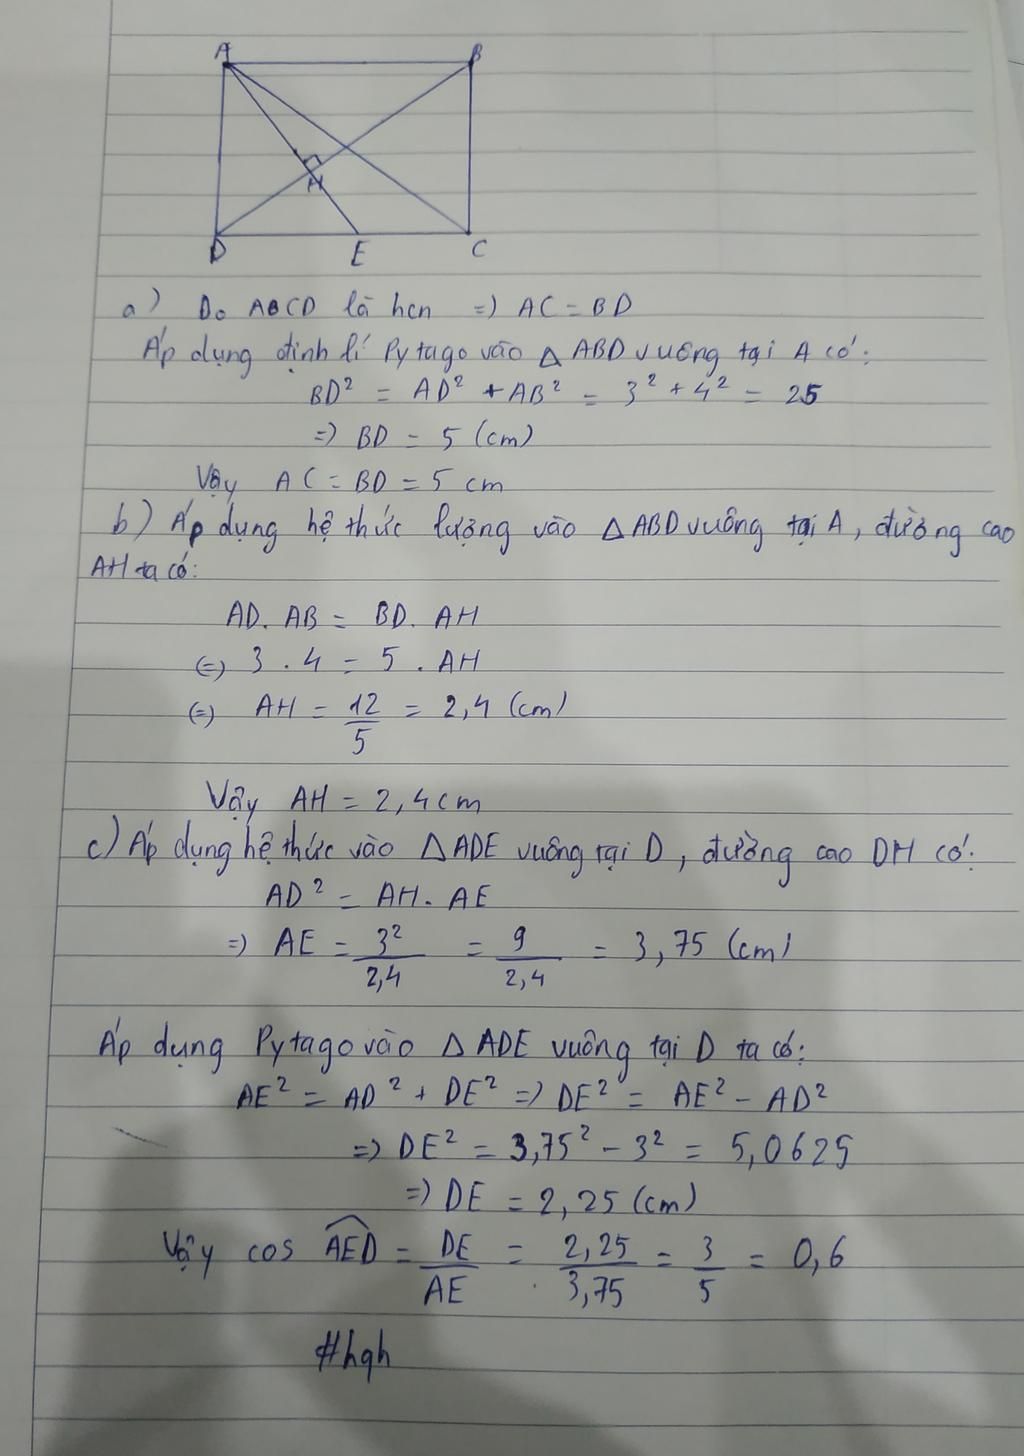 A B
H
D E C
a) Do ABCD là hcn => AC = BD
Áp dụng định lí Pytago vào △ ABD vuông tại A có:
BD² = AD² + AB² = 3² + 4² = 25
=> BD = 5 (cm)
Vậy AC = BD = 5 cm
b) Áp dụng hệ thức lượng vào △ABD vuông tại A, đường cao
AH ta có:
AD. AB = BD. AH
(=) 3 . 4 = 5 . AH
(=) AH = 12/5 = 2,4 (cm)
Vậy AH = 2,4cm
c) Áp dụng hệ thức vào △ADE vuông tại D, đường cao DH có:
AD² = AH. AE
=> AE = 3²/2,4 = 9/2,4 = 3,75 (cm)
Áp dụng Pytago vào △ ADE vuông tại D ta có:
AE² = AD² + DE² => DE² = AE² - AD²
=> DE² = 3,75² - 3² = 5,0625
=> DE = 2,25 (cm)
Vậy cos AED = DE/AE = 2,25/3,75 = 3/5 = 0,6
#hqh